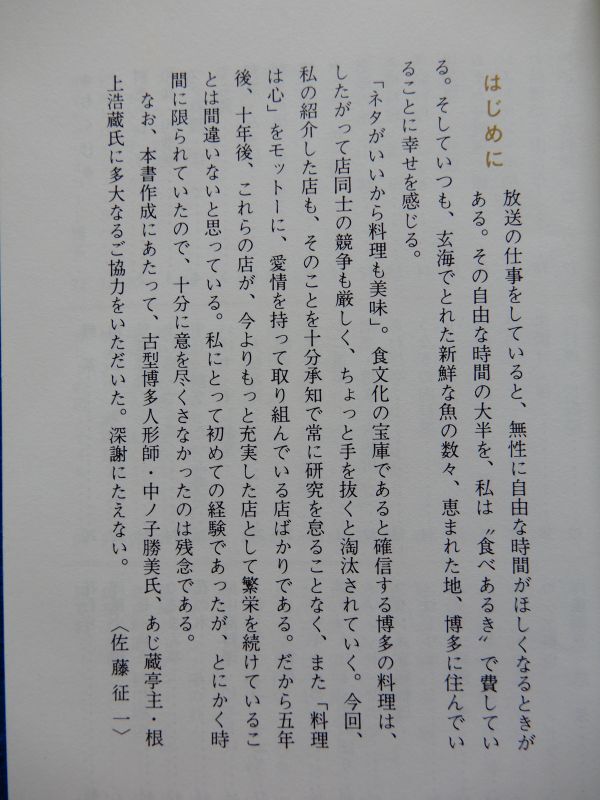 はじめに
放送の仕事をしていると、無性に自由な時間がほしくなるときが
ある。その自由な時間の大半を、私は〝食べあるき〟で費してい
る。そしていつも、玄海でとれた新鮮な魚の数々、恵まれた地、博多に住んでい
ることに幸せを感じる。
「ネタがいいから料理も美味」。食文化の宝庫であると確信する博多の料理は、
したがって店同士の競争も厳しく、ちょっと手を抜くと淘汰されていく。今回、
私の紹介した店も、そのことを十分承知で常に研究を怠ることなく、また「料理
は心」をモットーに、愛情を持って取り組んでいる店ばかりである。だから五年
後、十年後、これらの店が、今よりもっと充実した店として繁栄を続けているこ
とは間違いないと思っている。私にとって初めての経験であったが、とにかく時
間に限られていたので、十分に意を尽くさなかったのは残念である。
なお、本書作成にあたって、古型博多人形師・中ノ子勝美氏、あじ蔵亭主・根
上浩蔵氏に多大なるご協力をいただいた。深謝にたえない。
〈佐藤征一〉